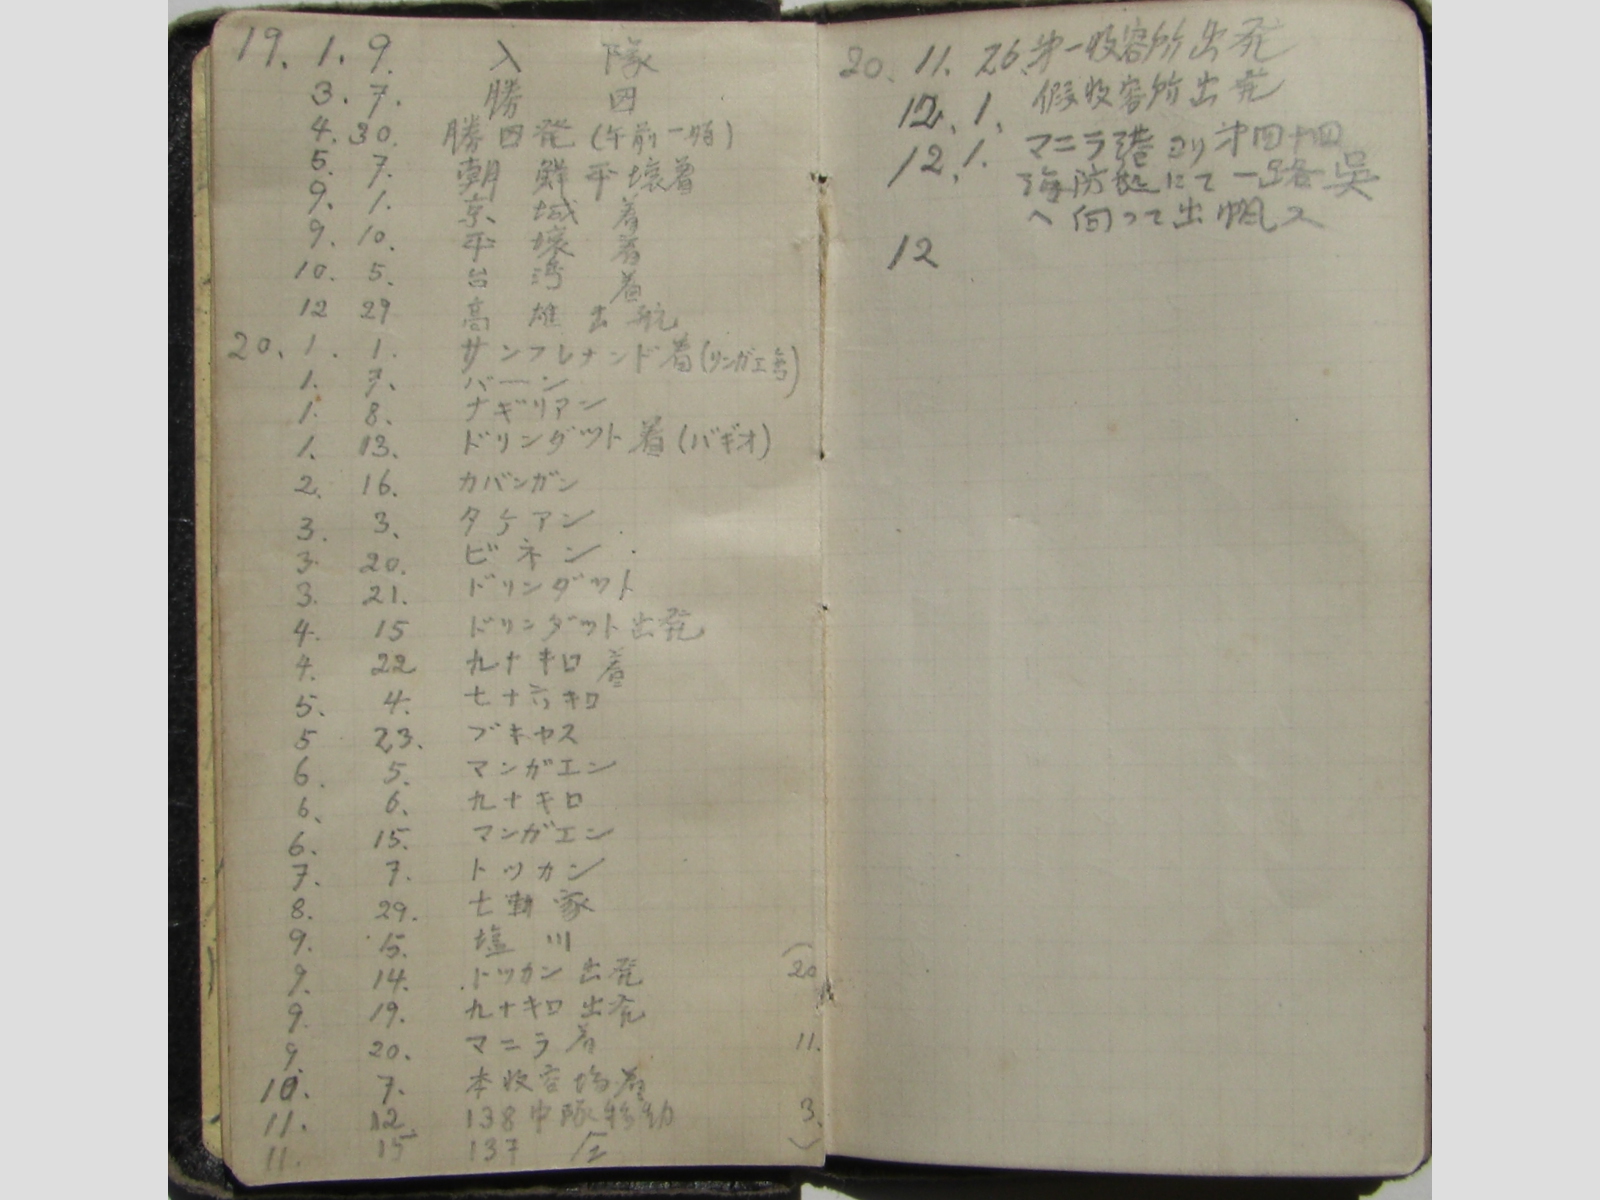 19. 1. 9. 入 隊
3. 7. 勝 田
4. 30. 勝田発 (午前一時)
5. 7. 朝 鮮 平壌着
9. 1. 京 城 着
9. 10. 平 壌 着
10. 5. 台 湾 着
12 29 高 雄 出 航
20. 1. 1. サンフレナンド着(リンガエ湾)
1. 7. バーン
1. 8. ナギリアン
1. 13. ドリンダット着(バギオ)
2. 16. カバンガン
3. 3. タケアン
3. 20. ビネン
3. 21. ドリンダット
4. 15 ドリンダット出発
4. 22 九十キロ 着
5. 4. 七十六キロ
5 23. ブキヤス
6. 5. マンガエン
6. 6. 九十キロ
6. 15. マンガエン
7. 7. トッカン
8. 29. 七軒家
9. 5. 塩 川
9. 14. トッカン出発
9. 19. 九十キロ出発
9. 20. マニラ着
10. 7. 本收容場着
11. 12. 138中隊移動
11. 15 137 〃
(20
11.
3.)
20. 11. 26. 第一收容所出発
12. 1. 假收容所出発
12. 1. マニラ港ヨリ第四十四
海防艦にて一路呉
へ向って出帆ス
12